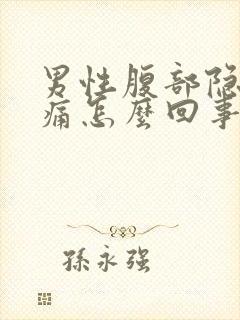 男性腹部隐
痛怎麼回事
孫永强